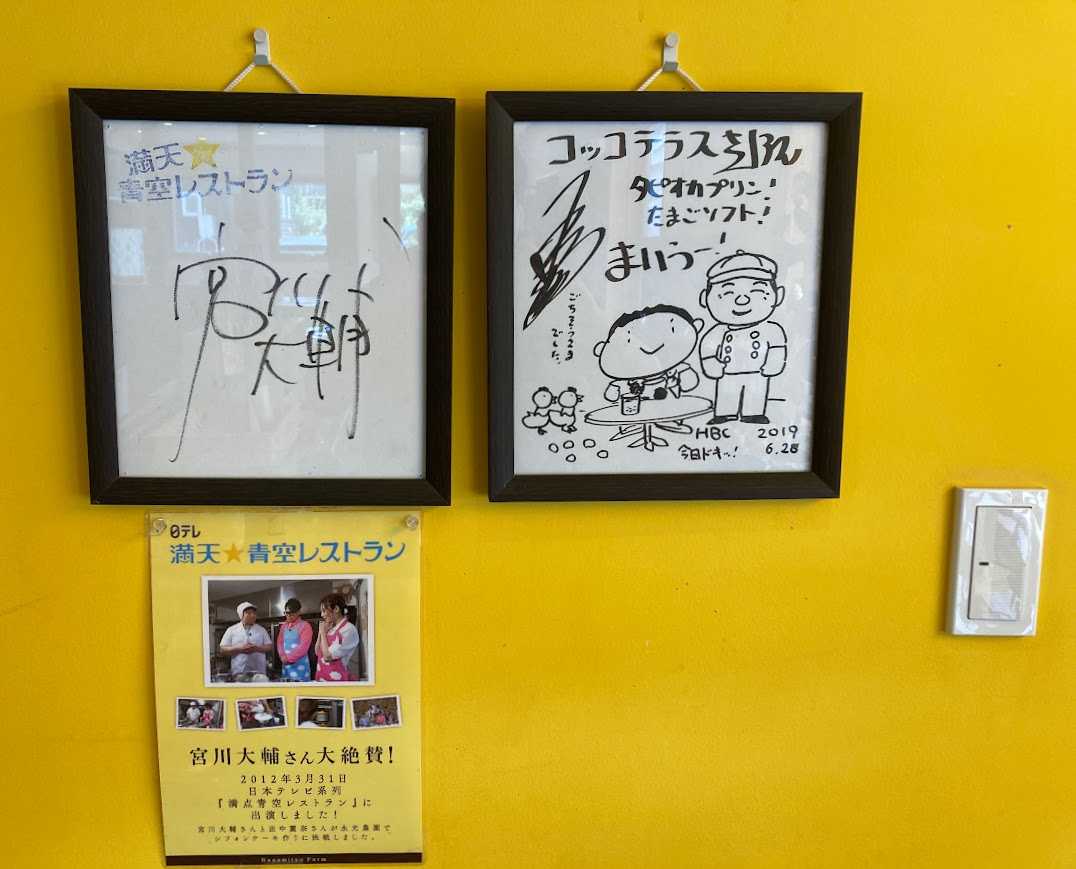 満天★
青空レストラン
宮川
大輔
コッコテラスさん江
タピオカプリン!
たまごソフト!
まいうー!
ごちそうさま
でした。
HBC 2019
今日ドキッ! 6.28
日テレ
満天★青空レストラン
宮川大輔さん大絶賛!
2012年3月31日
日本テレビ系列
『満点青空レストラン』に
出演しました!
宮川大輔さんと田中麗奈さんが永光農園で
シフォンケーキ作りに挑戦しました。
Nagamitsu Farm